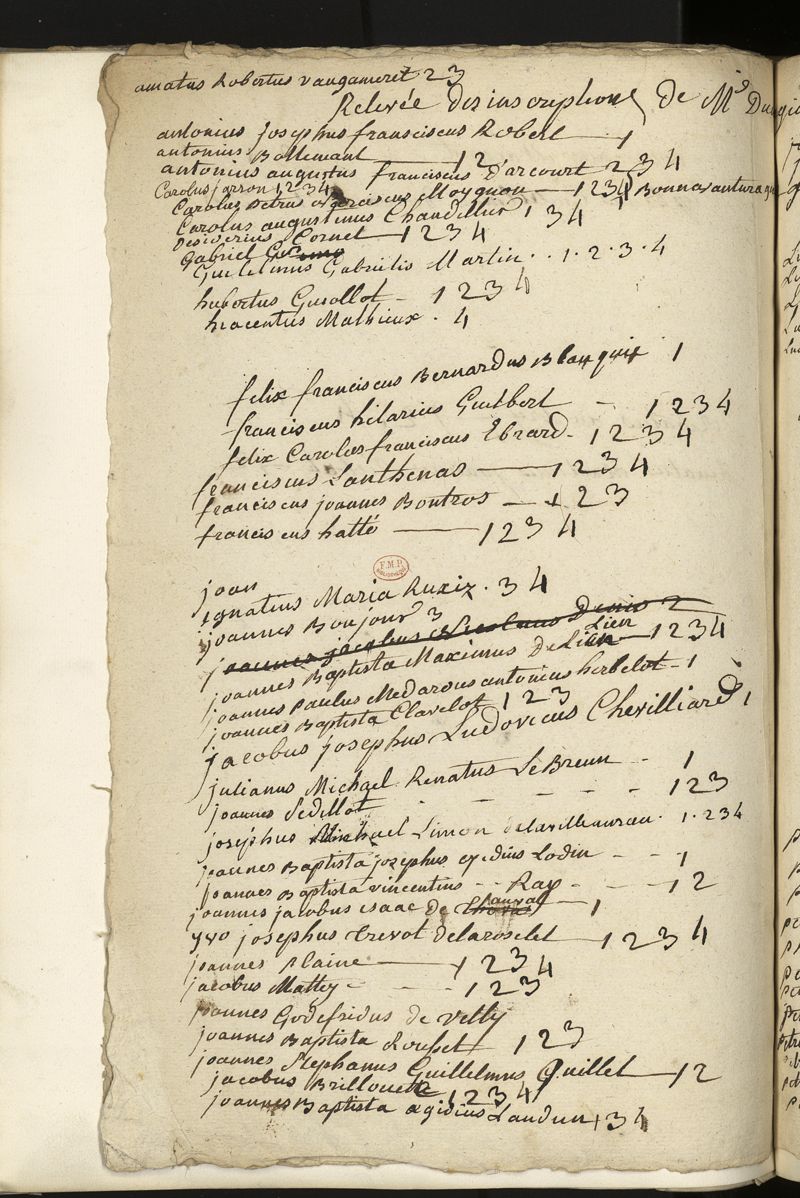 amatus Robertus vaugameret 2 3
Relevée des inscriptions de Mrs
antonius josephus fransciscus Robert 1
antonius Ballemant 1 2
antonius augustus franciscus d'arcourt 2 3 4
Carolus jorson 1 2 3 4
Carolus petrus franciscus Moygnon 1 2 3 4 Bonnaventura
Carolus augustinus Chandellier 1 3 4
Desiderius Cornet 1 2 3 4
Gabriel
Guilelmus Gabrielis Martin 1 2 3 4
hubertus Gusollot 1 2 3 4
hiacentus Mathieux 4
felix franciscus Bernardus 1
franciscus hilarius Guilbert 1 2 3 4
felix Carolus franciscus Ebrard 1 2 3 4
franciscus Lanthenas 1 2 3 4
franciscus joannes Bontros 1 2 3
franciscus hatté 1 2 3 4
F.M.P. BIBLIOTHEQUE
joan
ignatius Maria Ruxiz 3 4
joannes Bonjour 3
joannes jacobus Nicolaus Denis 2
Lien
joannes Baptista Maximus De 1 2 3 4
joannes paulus Medardus antonius herbelot 1
joannes Baptista Clavelot 1 2 3
jacobus josephus Ludovicus Chevilliard 1
julianus Michael Renatus Le Breun 1
joannes Sedillot 1 2 3
josephus Michael Simon delavilleneveau 1 2 3 4
joannes Baptista josephus egidius Lodin 1
joannes Baptista vincentius Ray 1 2
joannes jacobus isaac de 1
yvo josephus Trevot delaroselet 1 2 3 4
joannes plaine 1 2 3 4
jacobus Mattey 1 2 3
joannes Godefridus de velly
joannes Baptista Rousset 1 2 3
joannes Stephanus Guillelmus Quillet 1 2
jacobus Brillouette 1 2 3 4
joannes Baptista ægidius Landun 1 3 4